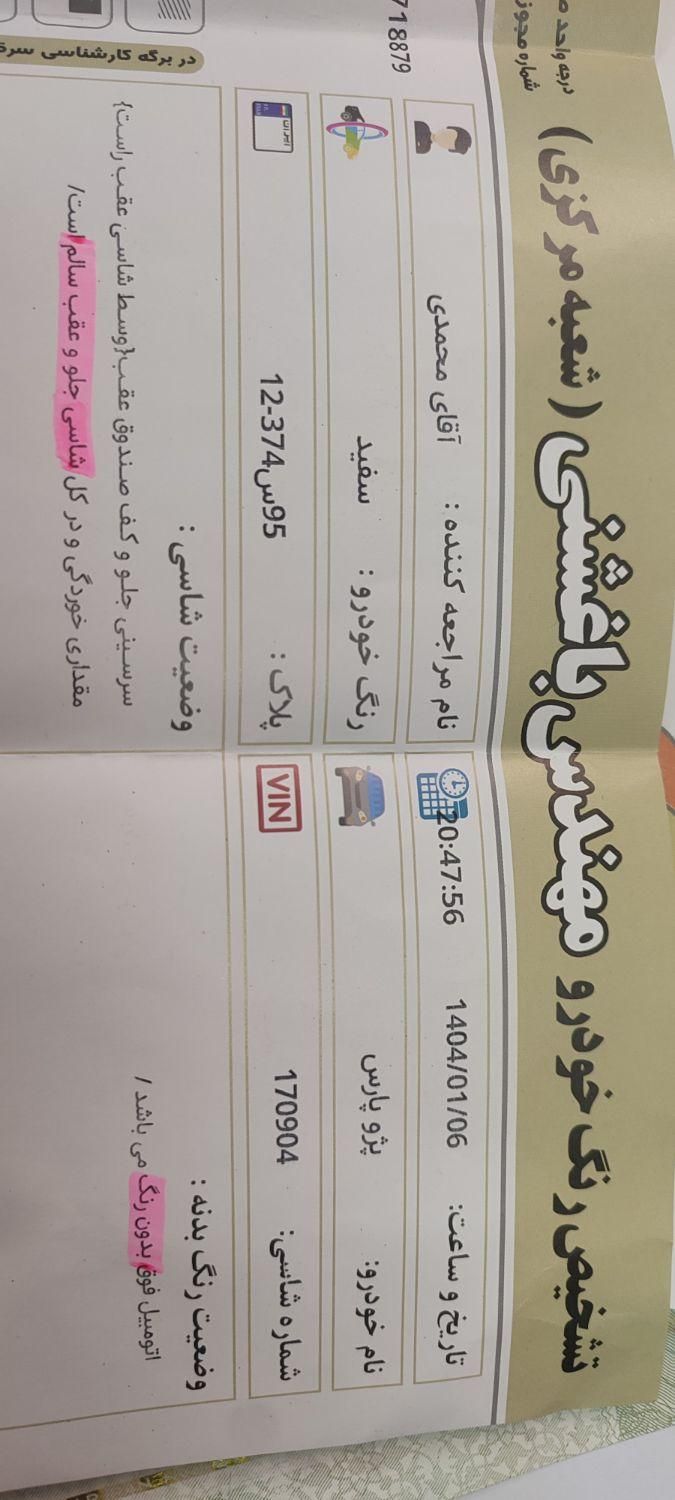 درجه واحد ص
شماره مجوز
تشخیص رنگ خودرو مهندس باغشنی ( شعبه مرکزی )
718879
تاریخ و ساعت: 1404/01/06 20:47:56
نام مراجعه کننده : آقای محمدی
نام خودرو: پژو پارس
رنگ خودرو : سفید
شماره شاسی: 170904
VIN
پلاک : 95س374-12
ایران
وضعیت رنگ بدنه :
اتومبیل فوق بدون رنگ می باشد /
وضعیت شاسی :
سرسینی جلو و کف صندوق عقب{وسط شاسی عقب راست}
مقداری خوردگی و در کل شاسی جلو و عقب سالم است/
در برگه کارشناسی سری